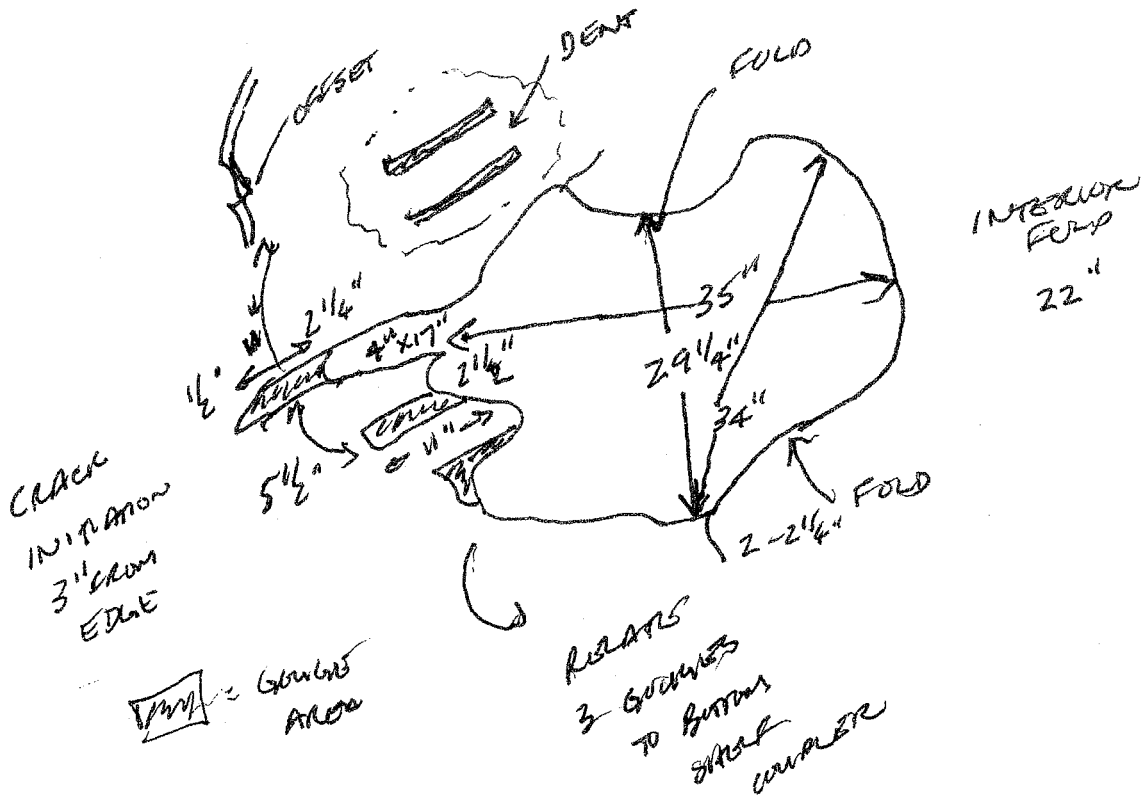 OFFSET
DENT
FOLD
INTERIOR
FOLD
22"
2 1/4"
1/2"
4" x 17"
35"
2 1/2"
29 1/4"
34"
11"
5 1/2"
FOLD
2 - 2 1/4"
CRACK
INITIATION
3" FROM
EDGE
= GOUGE
AREA
RELATE
3 GOUGES
TO BOTTOM
SHELF
COUPLER